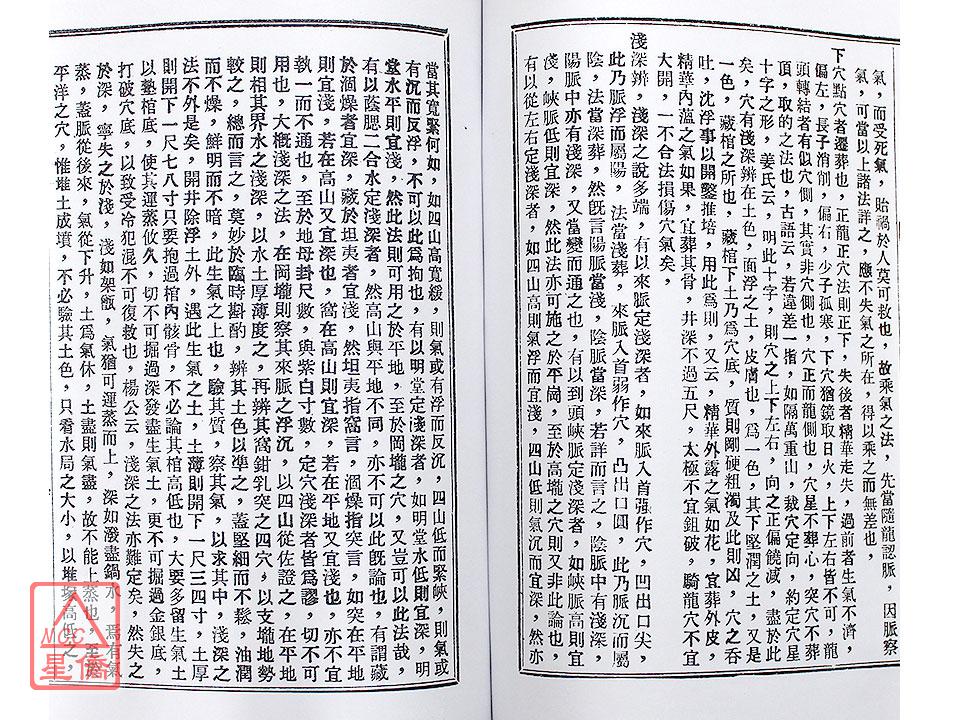 氣，而受死氣，貽禍於人莫可救也，故乘氣之法，先當隨龍認脈，因脈察
氣，可當以上諸法詳之，應不失氣之所在，得以乘之而無差也，
下穴點穴者遷葬也，正龍正穴法則正下，失後者精華走失，過前者生氣不濟，
偏左，長子消削，偏右，少子孤寒，下穴猶鏡取日火，上下左右皆不可，龍
頭轉結者有似穴側，其實非穴側也，穴正而龍側也，穴星不葬心，突穴不葬
頂，取的之法也，古語云，若違差一指，如隔萬重山，裁穴定向，約定穴星
十字之形，姜氏云，明此十字，則穴之上下左右，向之正偏饒減，盡於此
矣，穴有淺深辨在土色，面浮之土，皮膚也，為一色，其下堅潤之土，又是
一色，藏棺之所也，藏棺下土乃為穴底，質則剛硬粗濁及此則凶，穴之吞
吐，沈浮事以開鑿推培，用此為則，又云，精華外露之氣如花，宜葬外皮，
精華內溫之氣如果，宜葬其骨，井深不過五尺，太極不宜鉏破，騎龍穴不宜
大開，一不合法損傷穴氣矣，
淺深辨，淺深之說多端，有以來脈定淺深者，如來脈入首强作穴，凹出口尖，
此乃脈浮而屬陽，法當淺葬，來脈入首弱作穴，凸出口圓，此乃脈沉而屬
陰，法當深葬，然旣言陽脈當淺，陰脈當深，若詳而言之，陰脈中有淺深，
陽脈中亦有淺深，又當變而通之也，有以到頭峽脈定淺深者，如峽脈高則宜
淺，峽脈低則宜深，然此法亦可施之於平崗，至於高壠之穴，則又非此論也，
有以從左右定淺深者，如四山高則氣浮而宜淺，四山低則氣沉而宜深，然亦
當其寬緊何如，如四山高寬緩，則氣或有浮而反沉，四山低而緊峽，則氣或
有沉而反浮，不可以此為拘也，有以明堂定淺深者，如明堂水低則宜深，明
堂水平則宜淺，然此法則可用之於平地，至於岡壠之穴，又豈可以此法哉，
有以蔭腮二合水定淺深者，然高山與平地不同，亦不可以此旣論也，有謂藏
於涸燥者宜深，藏於坦夷者宜淺，然坦夷指窩言，涸燥指突言，如突在平地
則宜淺，若在高山又宜深也，窩在高山則宜深，若在平地又宜淺也，亦不宜
執一而不通也，至於地母卦尺數，與紫白寸數，定穴淺深者皆為謬，切不可
用也，大概淺深之法，在岡壠則察其來脈之浮沉，以四山從佐證之，在平地
則相其界水之淺深，以水土厚薄度之，再辨其窩鉗乳突之四穴，以支壠地勢
較之，總而言之，莫妙於臨時斟酌，辨其土色以準之，蓋堅細而不鬆，油潤
而不燥，鮮明而不暗，此生氣之上也，驗其質，察其氣，以求其中，淺深之
法不外是矣，開井除浮土外，遇此生氣之土，土薄則開下一尺三四寸，土厚
則開下一尺七八寸只要抱過棺內骸骨，不必論其棺高低也，大要多留生氣土
以墊棺底，使其運蒸攸久，切不可掘過深發盡生氣土，更不可掘過金銀底，
打破穴底，以致受冷犯混不可復救也，楊公云，淺深之法亦難定矣，然失之
於深，寧失之於淺，淺如架甑，氣猶可運蒸而上，深如潑盡鍋水，焉有氣
蒸，蓋脈從後來，氣從下升，土為氣休，土盡則氣盡，故不能上蒸也，至於
平洋之穴，惟堆土成墳，不必驗其土色，只看水局之大小，以堆塚高低之，
MCC
星僑